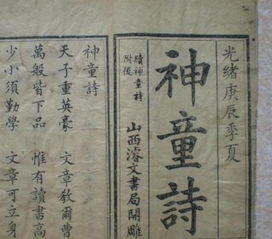 光緒庚辰季夏
神童詩
續神童詩
附後
山西濬文書局開雕
神童詩
天子重英豪 文章教爾曹
萬般皆下品 惟有讀書高
少小須勤學 文章可立身